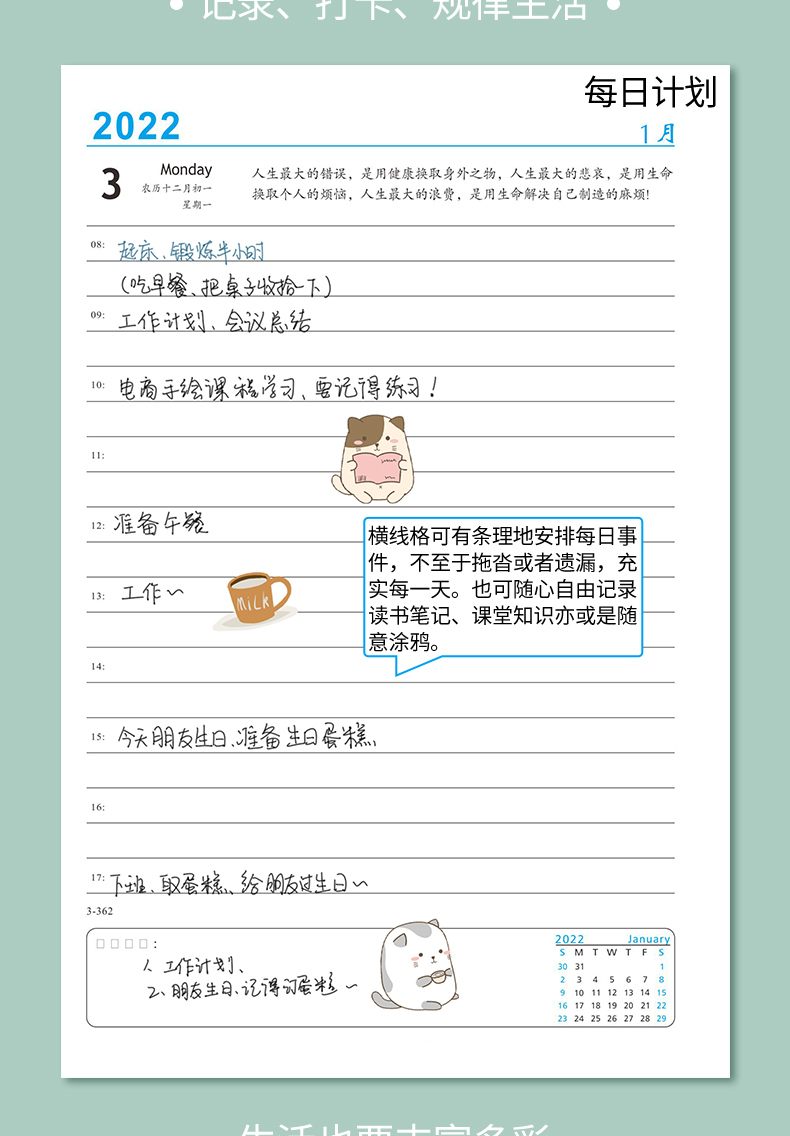 • 记录、打卡、规律生活 •
每日计划
2022
1月
3
Monday
农历十二月初一
星期一
人生最大的错误，是用健康换取身外之物，人生最大的悲哀，是用生命
换取个人的烦恼，人生最大的浪费，是用生命解决自己制造的麻烦!
08: 起床、锻炼半小时
(吃早餐、把桌子收拾一下)
09: 工作计划、会议总结
10: 电商手绘课程学习、要记得练习!
11:
12: 准备午餐
横线格可有条理地安排每日事
件，不至于拖沓或者遗漏，充
实每一天。也可随心自由记录
读书笔记、课堂知识亦或是随
意涂鸦。
13: 工作~
MiLK
14:
15: 今天朋友生日、准备生日蛋糕、
16:
17: 下班、取蛋糕、给朋友过生日~
3-362
□□□□:
1、工作计划、
2、朋友生日、记得订蛋糕~
2022 January
S M T W T F S
30 31 1
2 3 4 5 6 7 8
9 10 11 12 13 14 15
16 17 18 19 20 21 22
23 24 25 26 27 28 29
生活也要丰富多彩